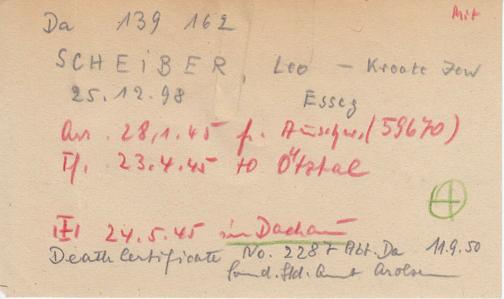 Mit
Da 139 162
SCHEIBER, Leo — Kroate Jew
25.12.98 Esseg
Arr. 28.1.45 f. Auschw. (59670)
Tf. 23.4.45 to Ötztal
24.5.45 in Dachau
Death Certificate No. 2287 Abt. Da 11.9.50
Sond. Std. Amt Arolsen